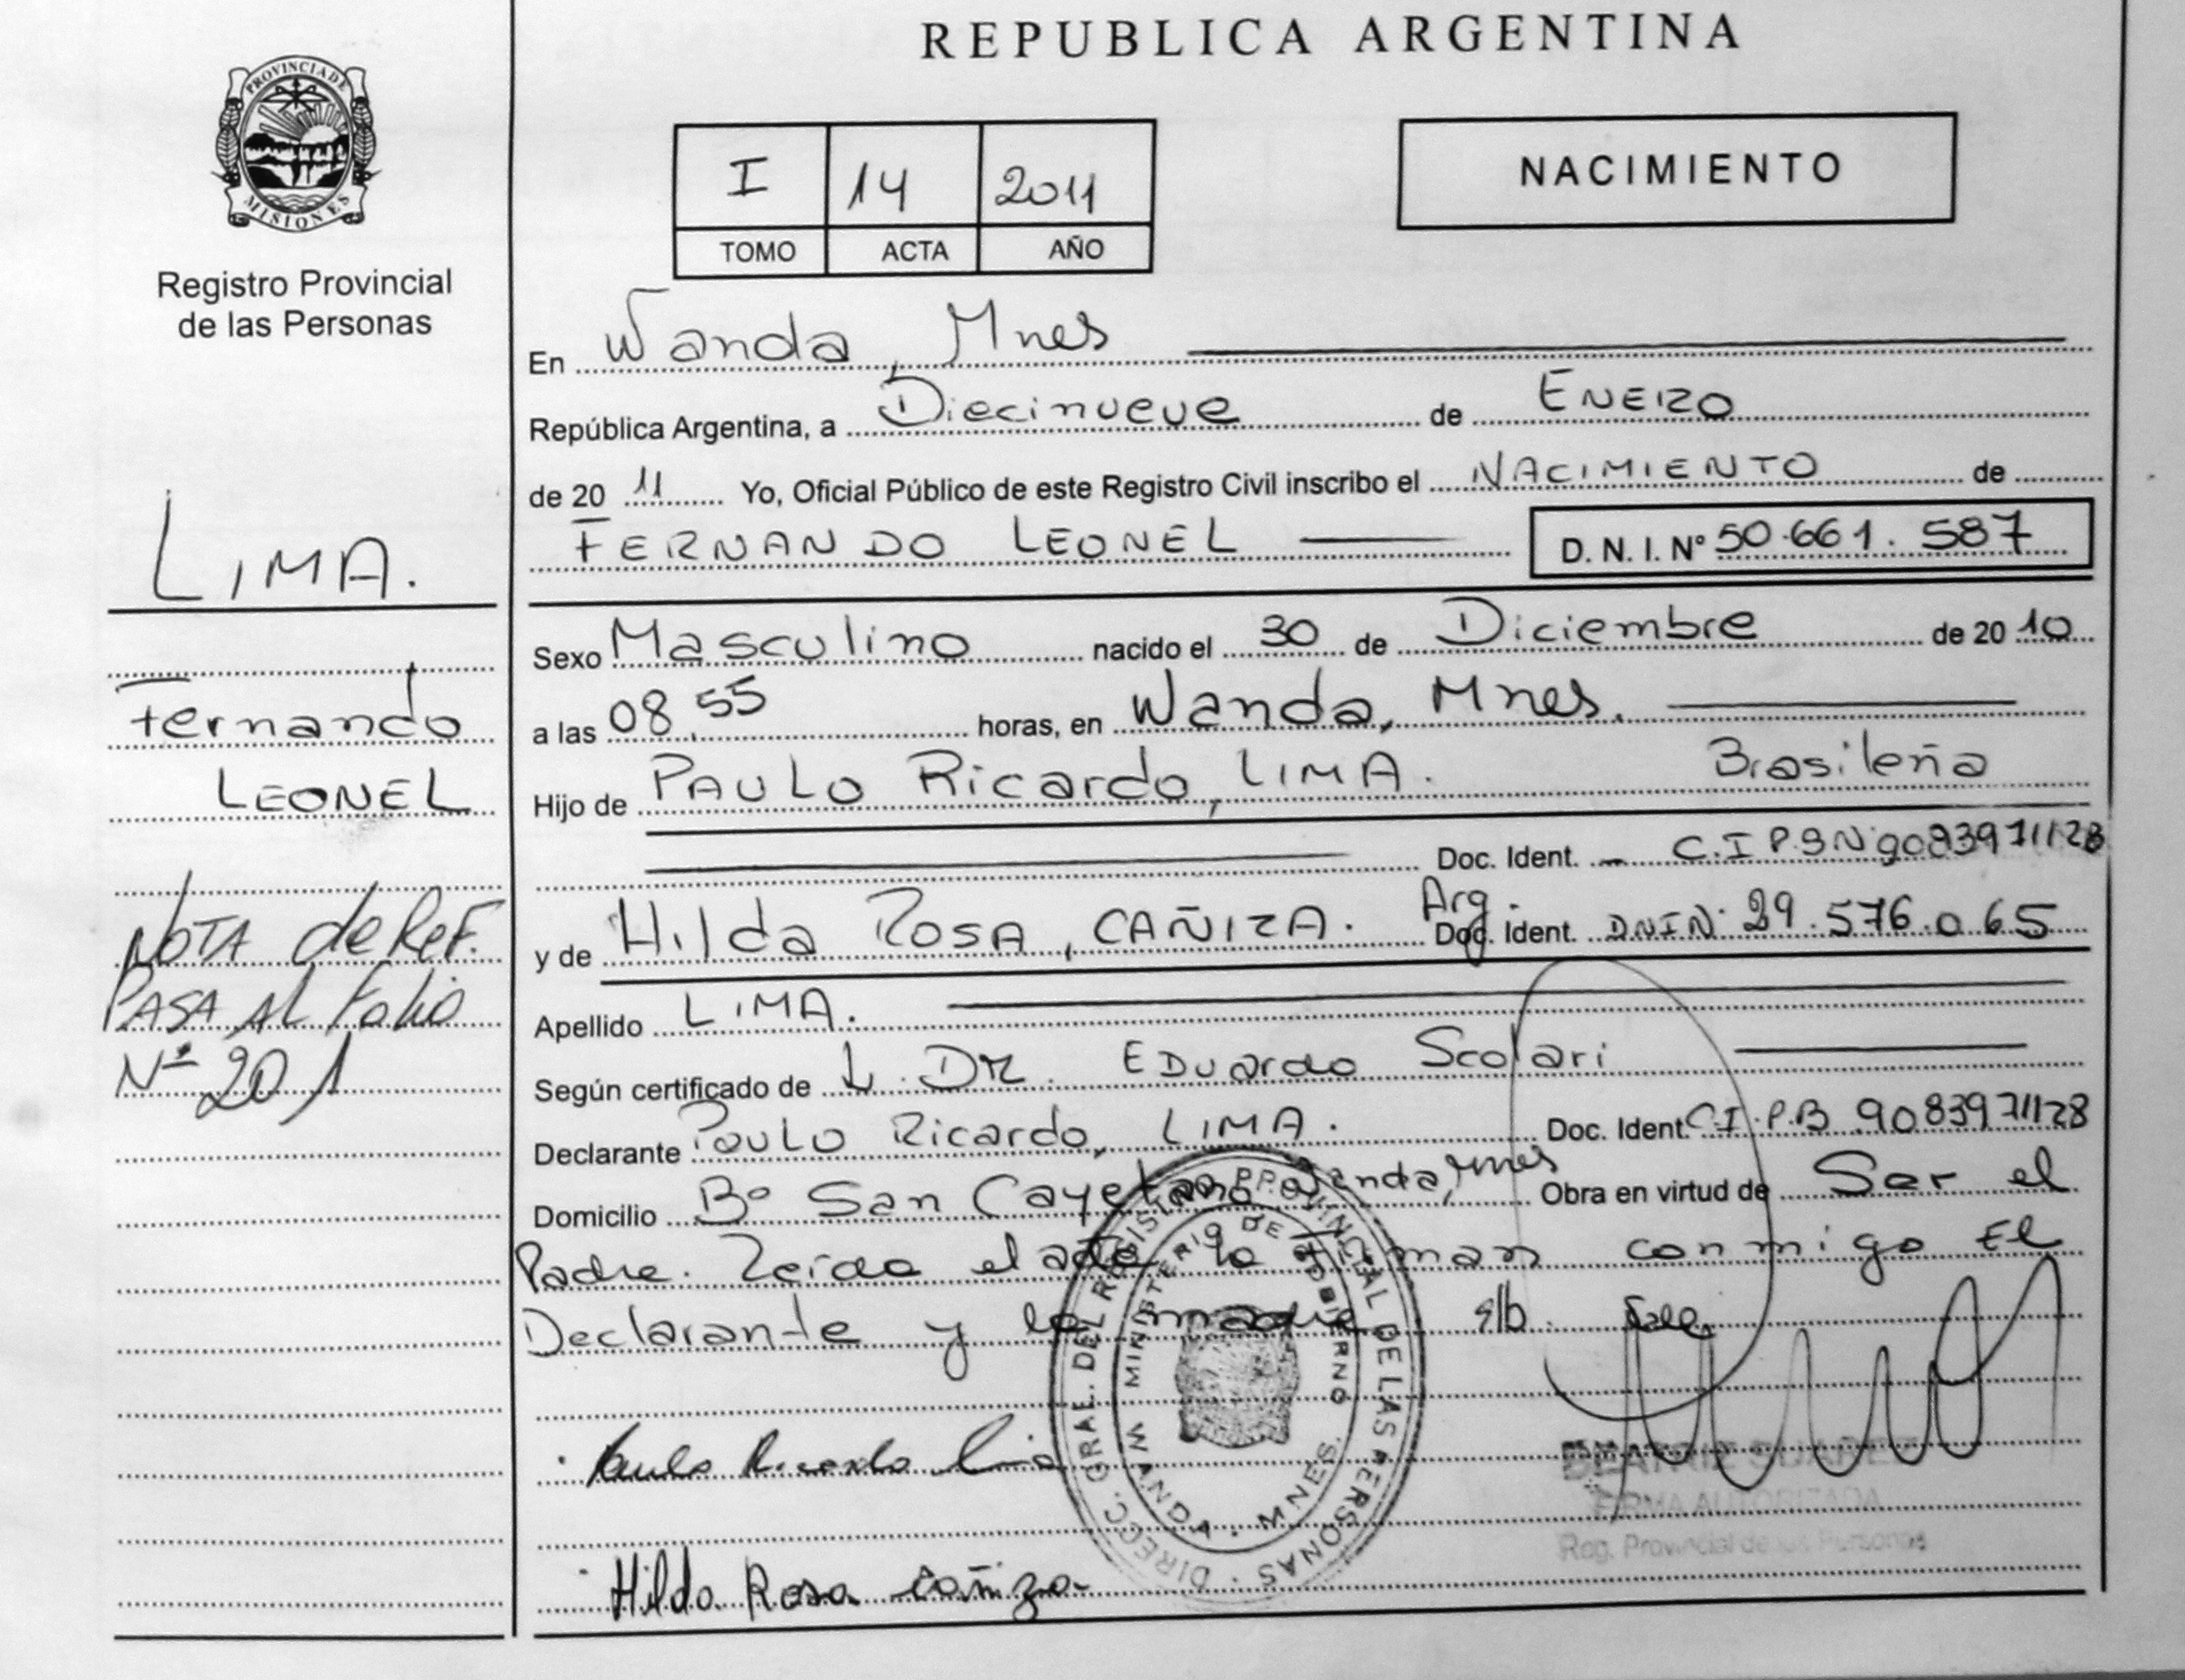 REPUBLICA ARGENTINA
PROVINCIA DE
MISIONES
Registro Provincial
de las Personas
I 14 2011
TOMO ACTA AÑO
NACIMIENTO
LIMA.
Fernando
LEONEL
NOTA de ReF.
PASA AL Folio
Nº 201
En Wanda, Mnes
República Argentina, a Diecinueve de ENERO
de 20 11 Yo, Oficial Público de este Registro Civil inscribo el NACIMIENTO de
FERNANDO LEONEL D. N. I. Nº 50.661.587
Sexo Masculino nacido el 30 de Diciembre de 20 10
a las 08,55 horas, en Wanda, Mnes.
Hijo de PAULO Ricardo, LIMA. Brasileña
Doc. Ident. C.I P.B Nº 9083971128
y de Hilda ROSA, CAÑIZA. Arg. Doc. Ident. DNI Nº 29.576.065
Apellido LIMA.
Según certificado de L. DR. EDuardo Scolari
Declarante Paulo Ricardo, LIMA. Doc. Ident. C.I.P.B 9083971128
Domicilio Bº San Cayetano Wanda, Mnes Obra en virtud de Ser el
Padre. Leida el acta la Firman conmigo El
Declarante y la madre s/b. Vale
Paulo Ricardo Lima
Hilda Rosa Cañiza
DIRECC. GRAL. DEL REGISTRO PROVINCIAL DE LAS PERSONAS
MINISTERIO DE GOBIERNO
WANDA - MNES.
BEATRIZ SUAREZ
FIRMA AUTORIZADA
Reg. Provincial de las Personas